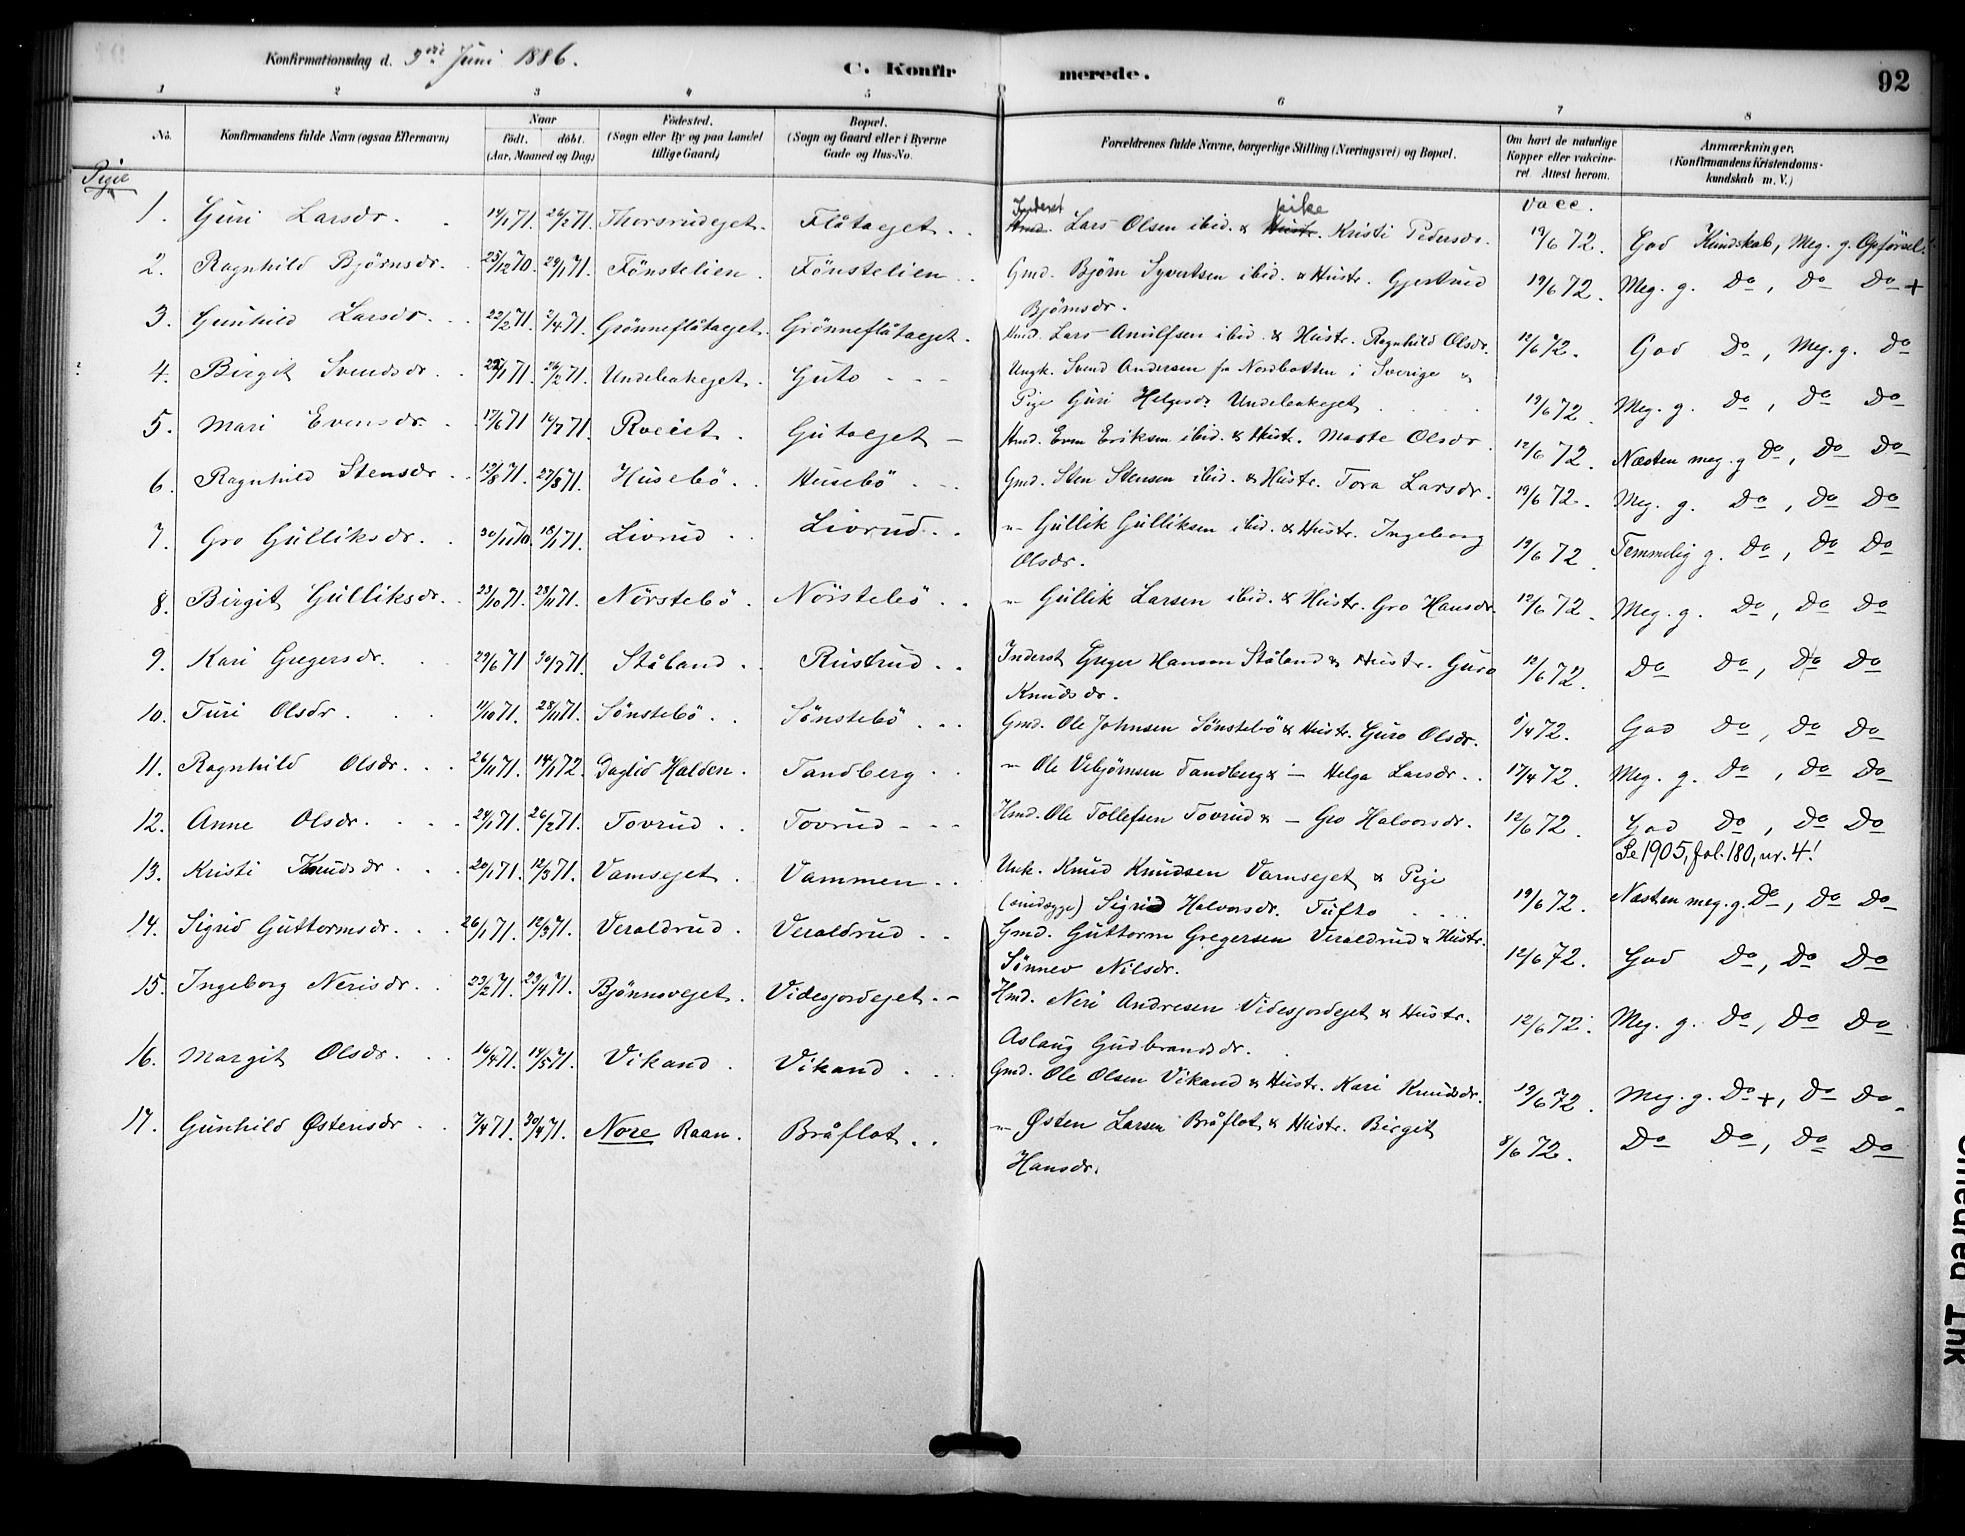 Konfirmationsdag d. 3die Juni 1886.
C. Konfirmerede.
92
1 2 3 4 5 6 7 8
No. Konfirmandens fulde Navn (ogsaa Efternavn) Naar født. døbt. (Aar, Maaned og Dag) Fødested. (Sogn eller By og paa Landet tillige Gaard) Bopæl. (Sogn og Gaard eller i Byerne Gade og Hus-No. Forældrenes fulde Navne, borgerlige Stilling (Næringsvei) og Bopæl. Om havt de naturlige Kopper eller vaccineret. Attest herom. Anmærkninger. (Konfirmandens Kristendomskundskab m. V.)
Piger
vacc.
1. Guri Larsdr. 14/1 71. 26/2 71. Thorsrudejet. Flåtaejet. Inderst Hmd. Lars Olsen ibid. & pike Hustr. Kristi Pedersdr. 19/6 72. God Kundskab, Meg. g. Opførsel.
2. Ragnhild Bjørnsdr. 25/12 70. 29/1 71. Fønstelien. Fønstelien. Gmd. Bjørn Syvertsen ibid. & Hustr. Gjertrud
Bjørnsdr. 19/6 72. Meg. g. Do, Do Do +
3. Gunhild Larsdr. 22/2 71. 2/4 71. Grønneflåtaejet. Grønneflåtaejet. Hmd. Lars Arnulfsen ibid. & Hustr. Ragnhild Olsdr. 12/6 72. God Do, Meg. g. Do
4. Birgit Svendsdr. 22/1 71. 26/2 71. Undebakejet. Guto Ungk. Svend Andersen fr Nordbotten i Sverige &
Pige Guri Helgesdr. Undebakejet 19/6 72. Meg. g. Do, Do Do
5. Mari Evensdr. 17/6 71. 16/7 71. Gutaejet Hmd. Even Eriksen ibid. & Hustr. Marte Olsdr. 12/6 72. Næsten meg. g Do, Do Do
6. Ragnhild Stensdr. 12/8 71. 27/8 71. Husebö. Husebö. Gmd. Sten Stensen ibid. & Hustr. Tora Larsdr. 19/6 72. Meg. g. Do, Do Do
7. Gro Gulliksdr. 30/11 70. 18/1 71. Livrud Livrud. " Gullik Gulliksen ibid. & Hustr. Ingeborg
Olsdr. 19/6 72. Temmelig g. Do, Do Do
8. Birgit Gulliksdr. 23/10 71. 28/11 71. Nörstebö. Nöistebö. " Gullik Larsen ibid. & Hustr. Gro Hansdr. 12/6 72. Meg. g. Do, Do Do
9. Kari Gregersdr. 29/6 71. 30/7 71. Ståland. Rustrud. Inderst Greger Hansen Ståland & Hustr. Guro
Knudsdr. 12/6 72. Do Do, Do Do
10. Turi Olsdr. 11/10 71. 28/11 71. Sönstebö. Sönstebö. Gmd. Ole Johnsen Sönstebö & Hustr. Guro Olsdr. 5/4 72. God Do, Do Do
11. Ragnhild Olsdr. 26/11 71. 14/1 72. Daglid Halden. Tandberg. " Ole Vebjörnsen Tandberg & " Helga Larsdr. 17/4 72. Meg. g. Do, Do Do
12. Anne Olsdr. 24/1 71. 26/2 71. Tovrud. Tovrud Hmd. Ole Tollefsen Tovrud & " Gro Halvorsdr. 12/6 72. God Do, Do Do
Se 1905, fol. 180, nr. 4!
13. Kristi Knudsdr. 20/1 71. 12/3 71. Vamsejet. Vammen. Unk. Knud Knudsen Vamsejet & Pige
Sigrid Halvorsdr. Tufto 19/6 72. Næsten meg. g. Do, Do Do
14. Sigrid Guttormsdr. 26/1 71. 12/3 71. Veraldrud. Veraldrud. Gmd. Guttorm Gregersen Veraldrud & Hustr.
Sönnev Nilsdr. 12/6 72. God Do, Do Do
15. Ingeborg Nerisdr. 23/2 71. 23/4 71. Bjönnsvejet. Videsjordejet. Hmd. Neri Andresen Videsjordejet & Hustr.
Aslaug Gudbrandsdr. 12/6 72. Meg. g. Do, Do Do
16. Margit Olsdr. 16/4 71. 14/5 71. Vikand. Vikand. Gmd. Ole Olsen Vikand & Hustr. Kari Knudsdr. 19/6 72. Meg. g. Do +, Do Do
17. Gunhild Østensdr. 7/4 71. 30/4 71. Nore Raan. Bråflot. " Østen Larsen Bråflot & Hustr. Birgit
Hansdr. 8/6 72. Do Do, Do Do
Smeared Ink